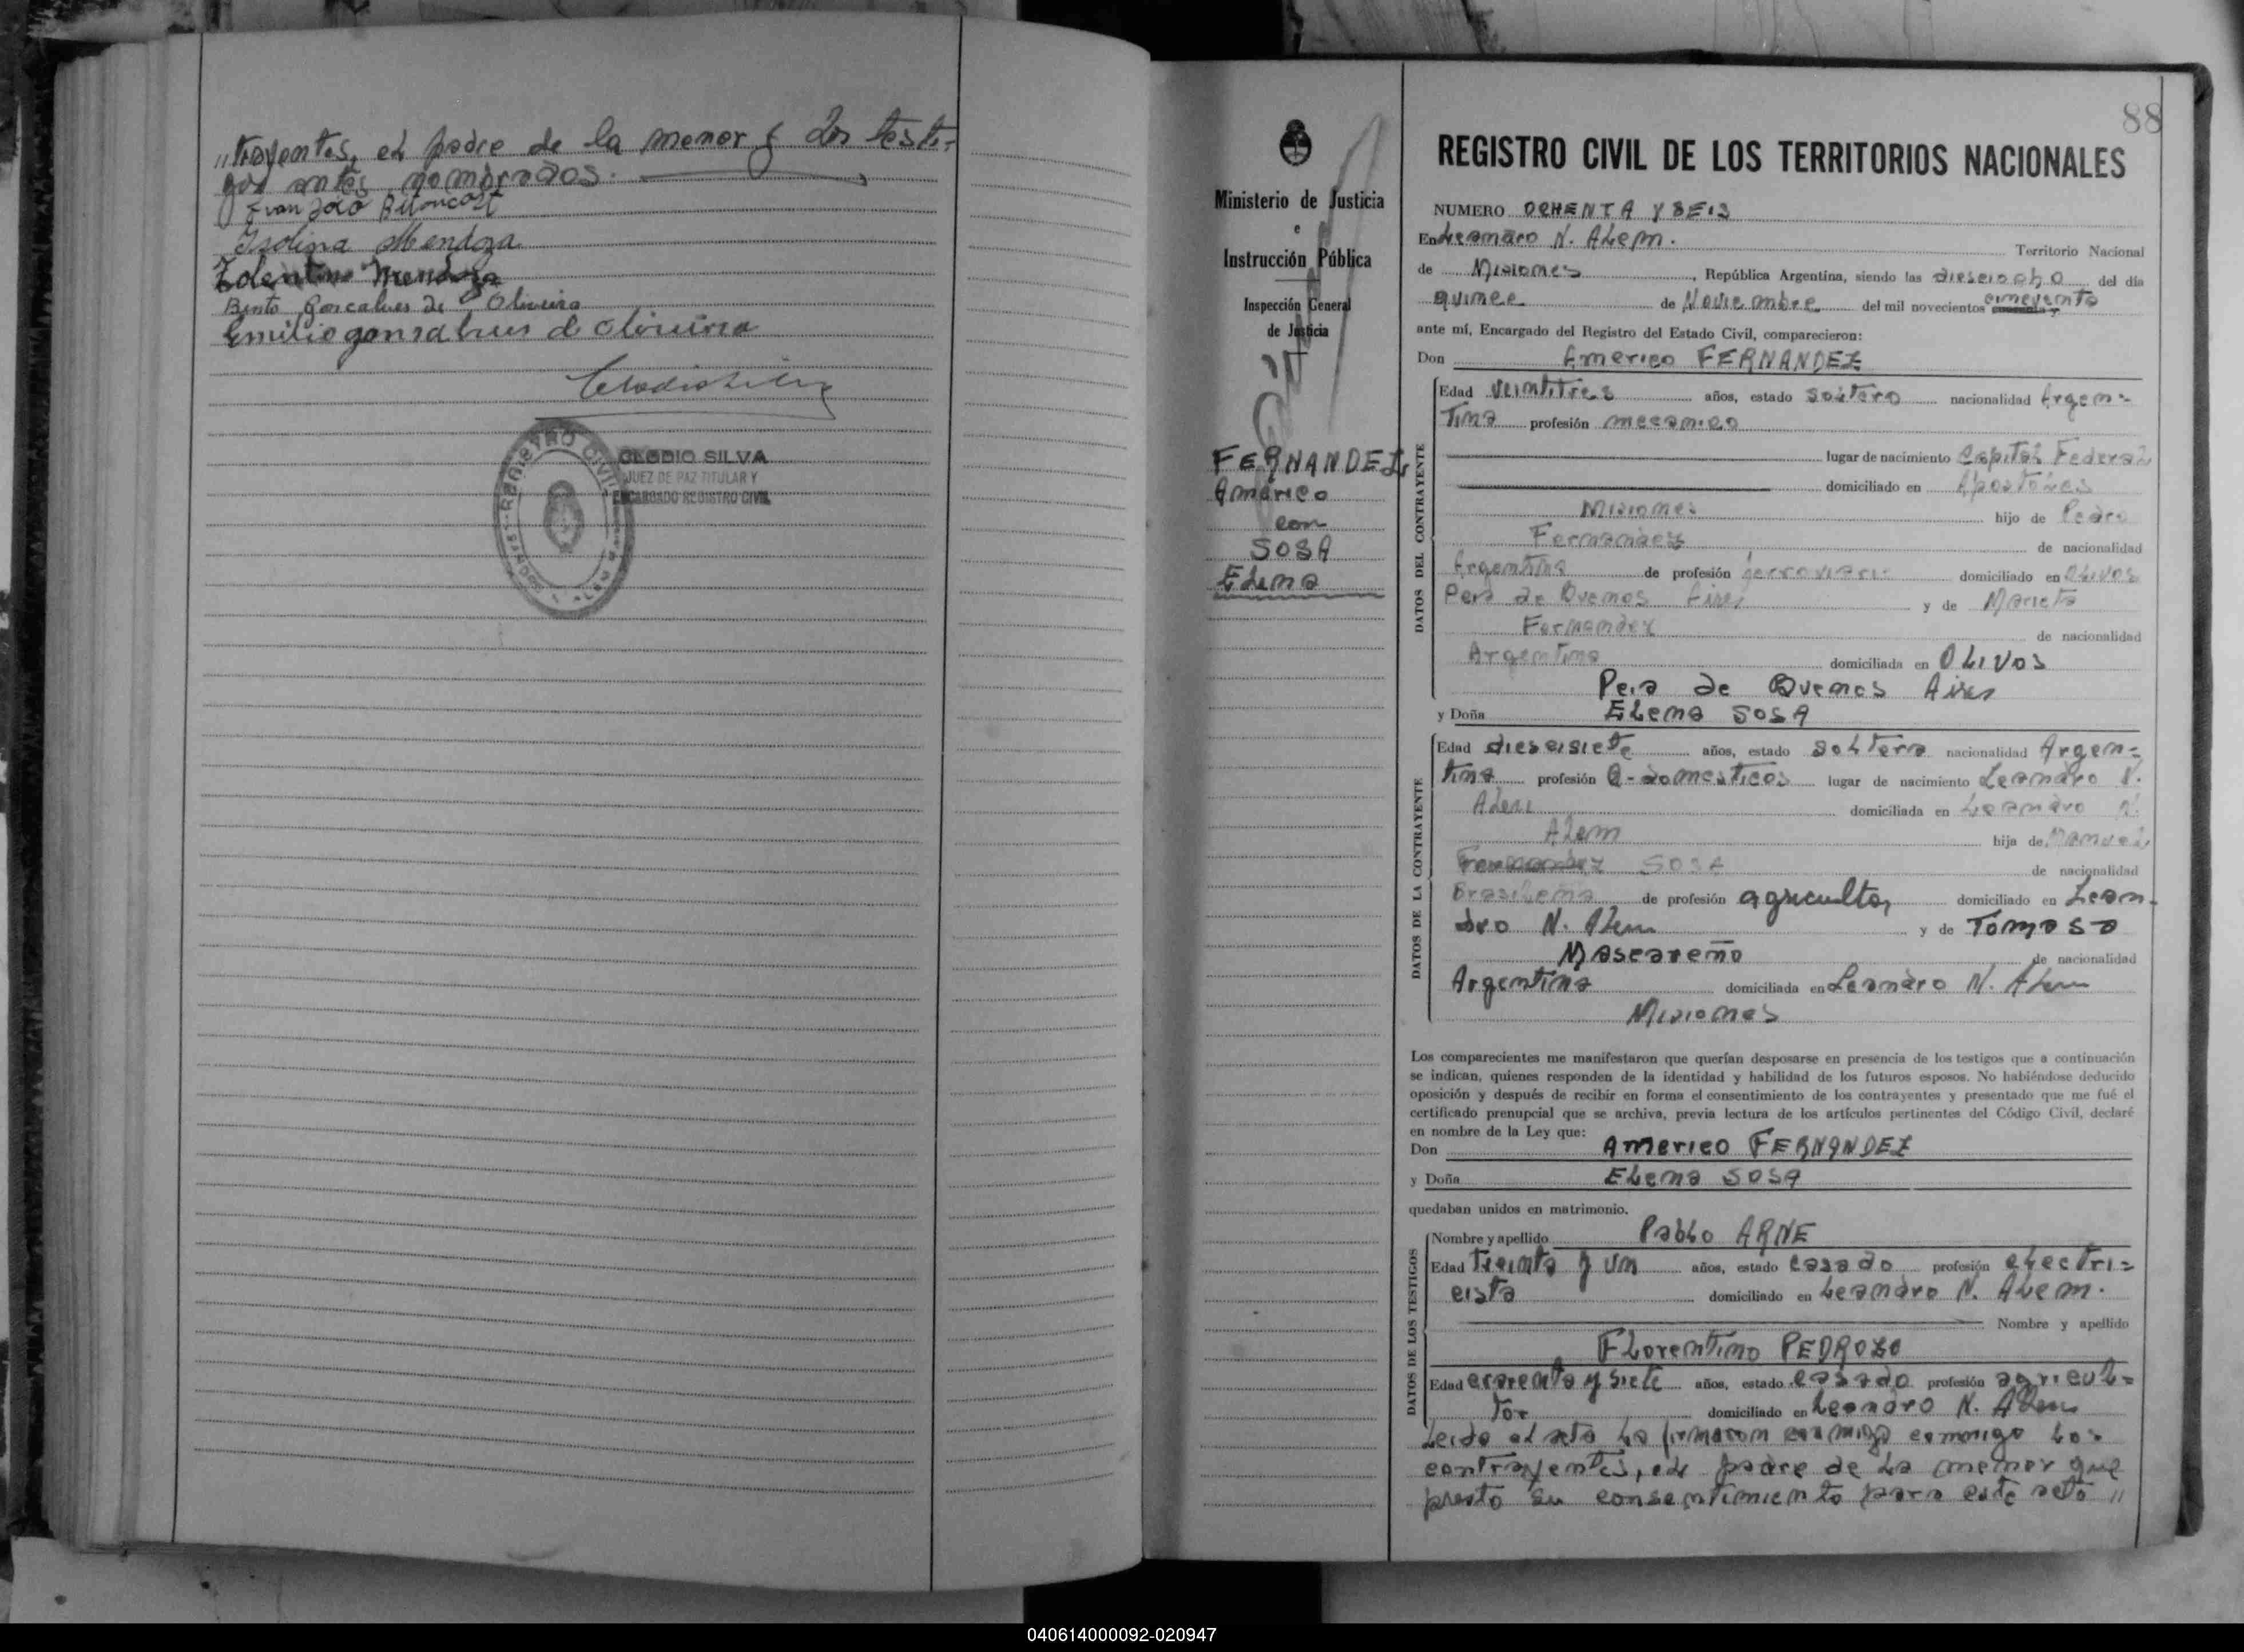 "trayentes, el padre de la menor y los testi=
gos antes nombrados.
Isolina Mendoza
Mendoza
Bento Goncalves de Oliveira
Emilio gonsalves de oliveira
REGISTRO CIVIL
CLODIO SILVA
JUEZ DE PAZ TITULAR Y
ENCARGADO REGISTRO CIVIL
Ministerio de Justicia
e
Instrucción Pública
Inspección General
de Justicia
FERNANDEZ
Américo
con
SOSA
Elena
88
REGISTRO CIVIL DE LOS TERRITORIOS NACIONALES
NUMERO OCHENTA Y SEIS
En Leandro N. Alem. Territorio Nacional
de Misiones, República Argentina, siendo las diesciocho del día
quince de Noviembre del mil novecientos cincuenta
ante mí, Encargado del Registro del Estado Civil, comparecieron:
Don Americo FERNANDEZ
DATOS DEL CONTRAYENTE
Edad veintitres años, estado soltero nacionalidad Argen=
tina profesión mecanico
lugar de nacimiento Capital Federal
domiciliado en Apostoles
Misiones hijo de Pedro
Fernandez de nacionalidad
Argentina de profesión ferroviario domiciliado en Olivos
Pcia de Buenos Aires y de Marieta
Fernandez de nacionalidad
Argentina domiciliada en Olivos
Pcia de Buenos Aires
y Doña Elena SOSA
DATOS DE LA CONTRAYENTE
Edad diesisiete años, estado soltera nacionalidad Argen=
tina profesión Q-domesticos lugar de nacimiento Leandro N.
Alem domiciliada en Leandro N.
Alem hija de Manuel
Fernandez SOSA de nacionalidad
Brasileña de profesión agricultor domiciliado en Lean-
dro N. Alem y de Tomasa
Mascareño de nacionalidad
Argentina domiciliada en Leandro N. Alem
Misiones
Los comparecientes me manifestaron que querían desposarse en presencia de los testigos que a continuación
se indican, quienes responden de la identidad y habilidad de los futuros esposos. No habiéndose deducido
oposición y después de recibir en forma el consentimiento de los contrayentes y presentado que me fué el
certificado prenupcial que se archiva, previa lectura de los artículos pertinentes del Código Civil, declaré
en nombre de la Ley que:
Don Americo FERNANDEZ
y Doña Elena SOSA
quedaban unidos en matrimonio.
DATOS DE LOS TESTIGOS
Nombre y apellido Pablo ARNE
Edad Treinta y un años, estado casado profesión electri=
cista domiciliado en Leandro N. Alem.
Nombre y apellido
Florentino PEDROZO
Edad cuarenta y siete años, estado casado profesión agricul=
tor domiciliado en Leandro N. Alem
Leida el acta la firmaron conmigo conmigo los
contrayentes, el padre de la menor que
presto su consentimiento para este acto "
040614000092-020947